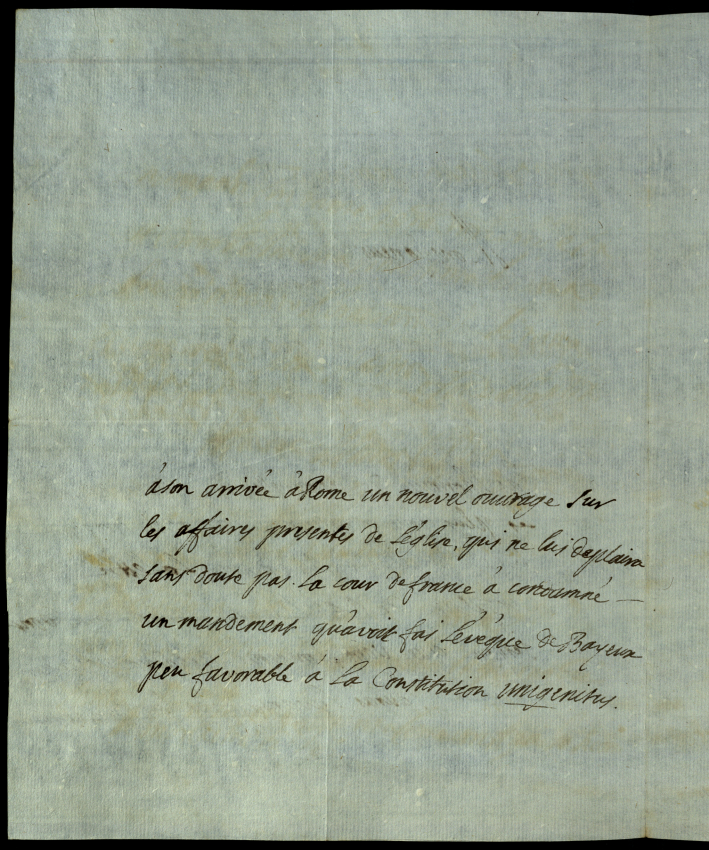 à son arrivée à Rome un nouvel ouvrage sur
les affaires presentes de L'église, qui ne lui deplaira
sans doute pas. La cour de france à condamné
un mandement qu'avoit fai L'évéque de Bayeux
peu favorable à La Constitution unigenitus.